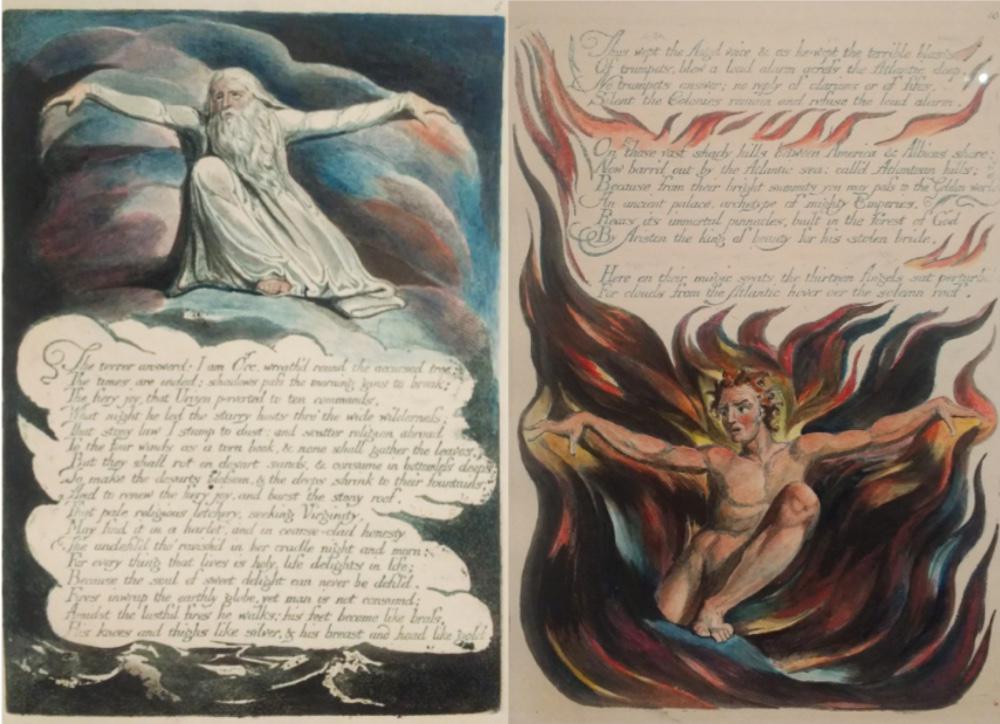 The terror answerd: I am Orc, wreath'd round the accursed tree:
The times are ended; shadows pass the morning gins to break;
The fiery joy, that Urizen perverted to ten commands,
What night he led the starry hosts thro' the wide wilderness:
That stony law I stamp to dust: and scatter religion abroad
To the four winds as a torn book, & none shall gather the leaves;
But they shall rot on desart sands, & consume in bottomless deeps;
To make the desarts blossom, & the deeps shrink to their fountains,
And to renew the fiery joy, and burst the stony roof.
That pale religious letchery, seeking Virginity,
May find it in a harlot, and in coarse-clad honesty
The undefil'd tho' ravish'd in her cradle night and morn:
For every thing that lives is holy, life delights in life;
Because the soul of sweet delight can never be defil'd.
Fires inwrap the earthly globe, yet man is not consumd;
Amidst the lustful fires he walks: his feet become like brass,
His knees and thighs like silver, & his breast and head like gold.
Thus wept the Angel voice & as he wept the terrible blasts
Of trumpets, blew a loud alarm across the Atlantic deep.
No trumpets answer; no reply of clarions or of fifes,
Silent the Colonies remain and refuse the loud alarm.
On those vast shady hills between America & Albions shore;
Now barr'd out by the Atlantic sea: call'd Atlantean hills:
Because from their bright summits you may pass to the Golden world
An ancient palace, archetype of mighty Emperies,
Rears its immortal pinnacles, built in the forest of God
By Ariston the king of beauty for his stolen bride,
Here on their magic seats the thirteen Angels sat perturb'd
For clouds from the Atlantic hover oer the solemn roof.